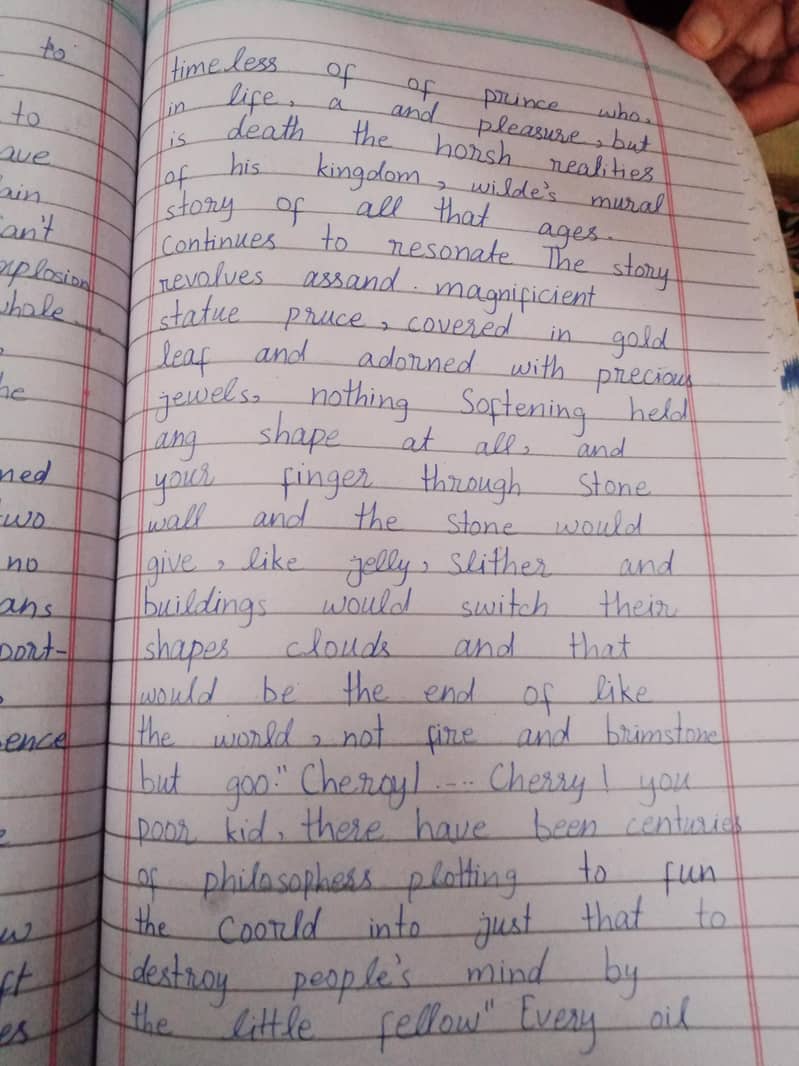 timeless of of prince who,
in life, a and pleasure, but
is death the horsh realities
of his kingdom, wilde's mural
story of all that ages.
continues to resonate The story
revolves assand. magnificient
statue pruce, covered in gold
leaf and adorned with precious
jewels, nothing Softening held
ang shape at all, and
your finger through stone
wall and the stone would
give, like jelly, slither and
buildings would switch their
shapes clouds and that
would be the end of like
the world, not fire and brimstone
but goo." Cheroy! .... Cherry! you
poor kid, there have been centuries
of philosophess plotting to fun
the Coorld into just that to
destroy people's mind by
the little fellow" Every oil
to
to
ave
ain
an't
xplosion
whole
he
ned
two
no
ans
port-
ence
w
ft
es